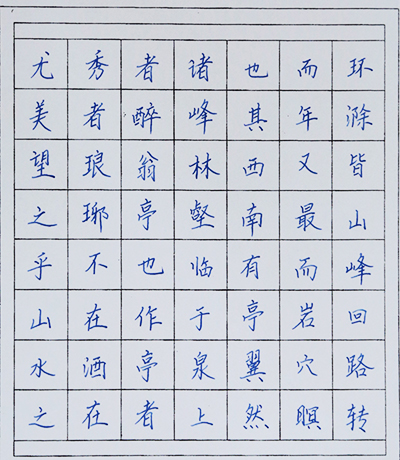 环滁皆山峰回路转
而年又最而岩穴暝
也其西南有亭翼然
诸峰林壑临于泉上
者醉翁亭也作亭者
秀者琅琊不在酒在
尤美望之乎山水之